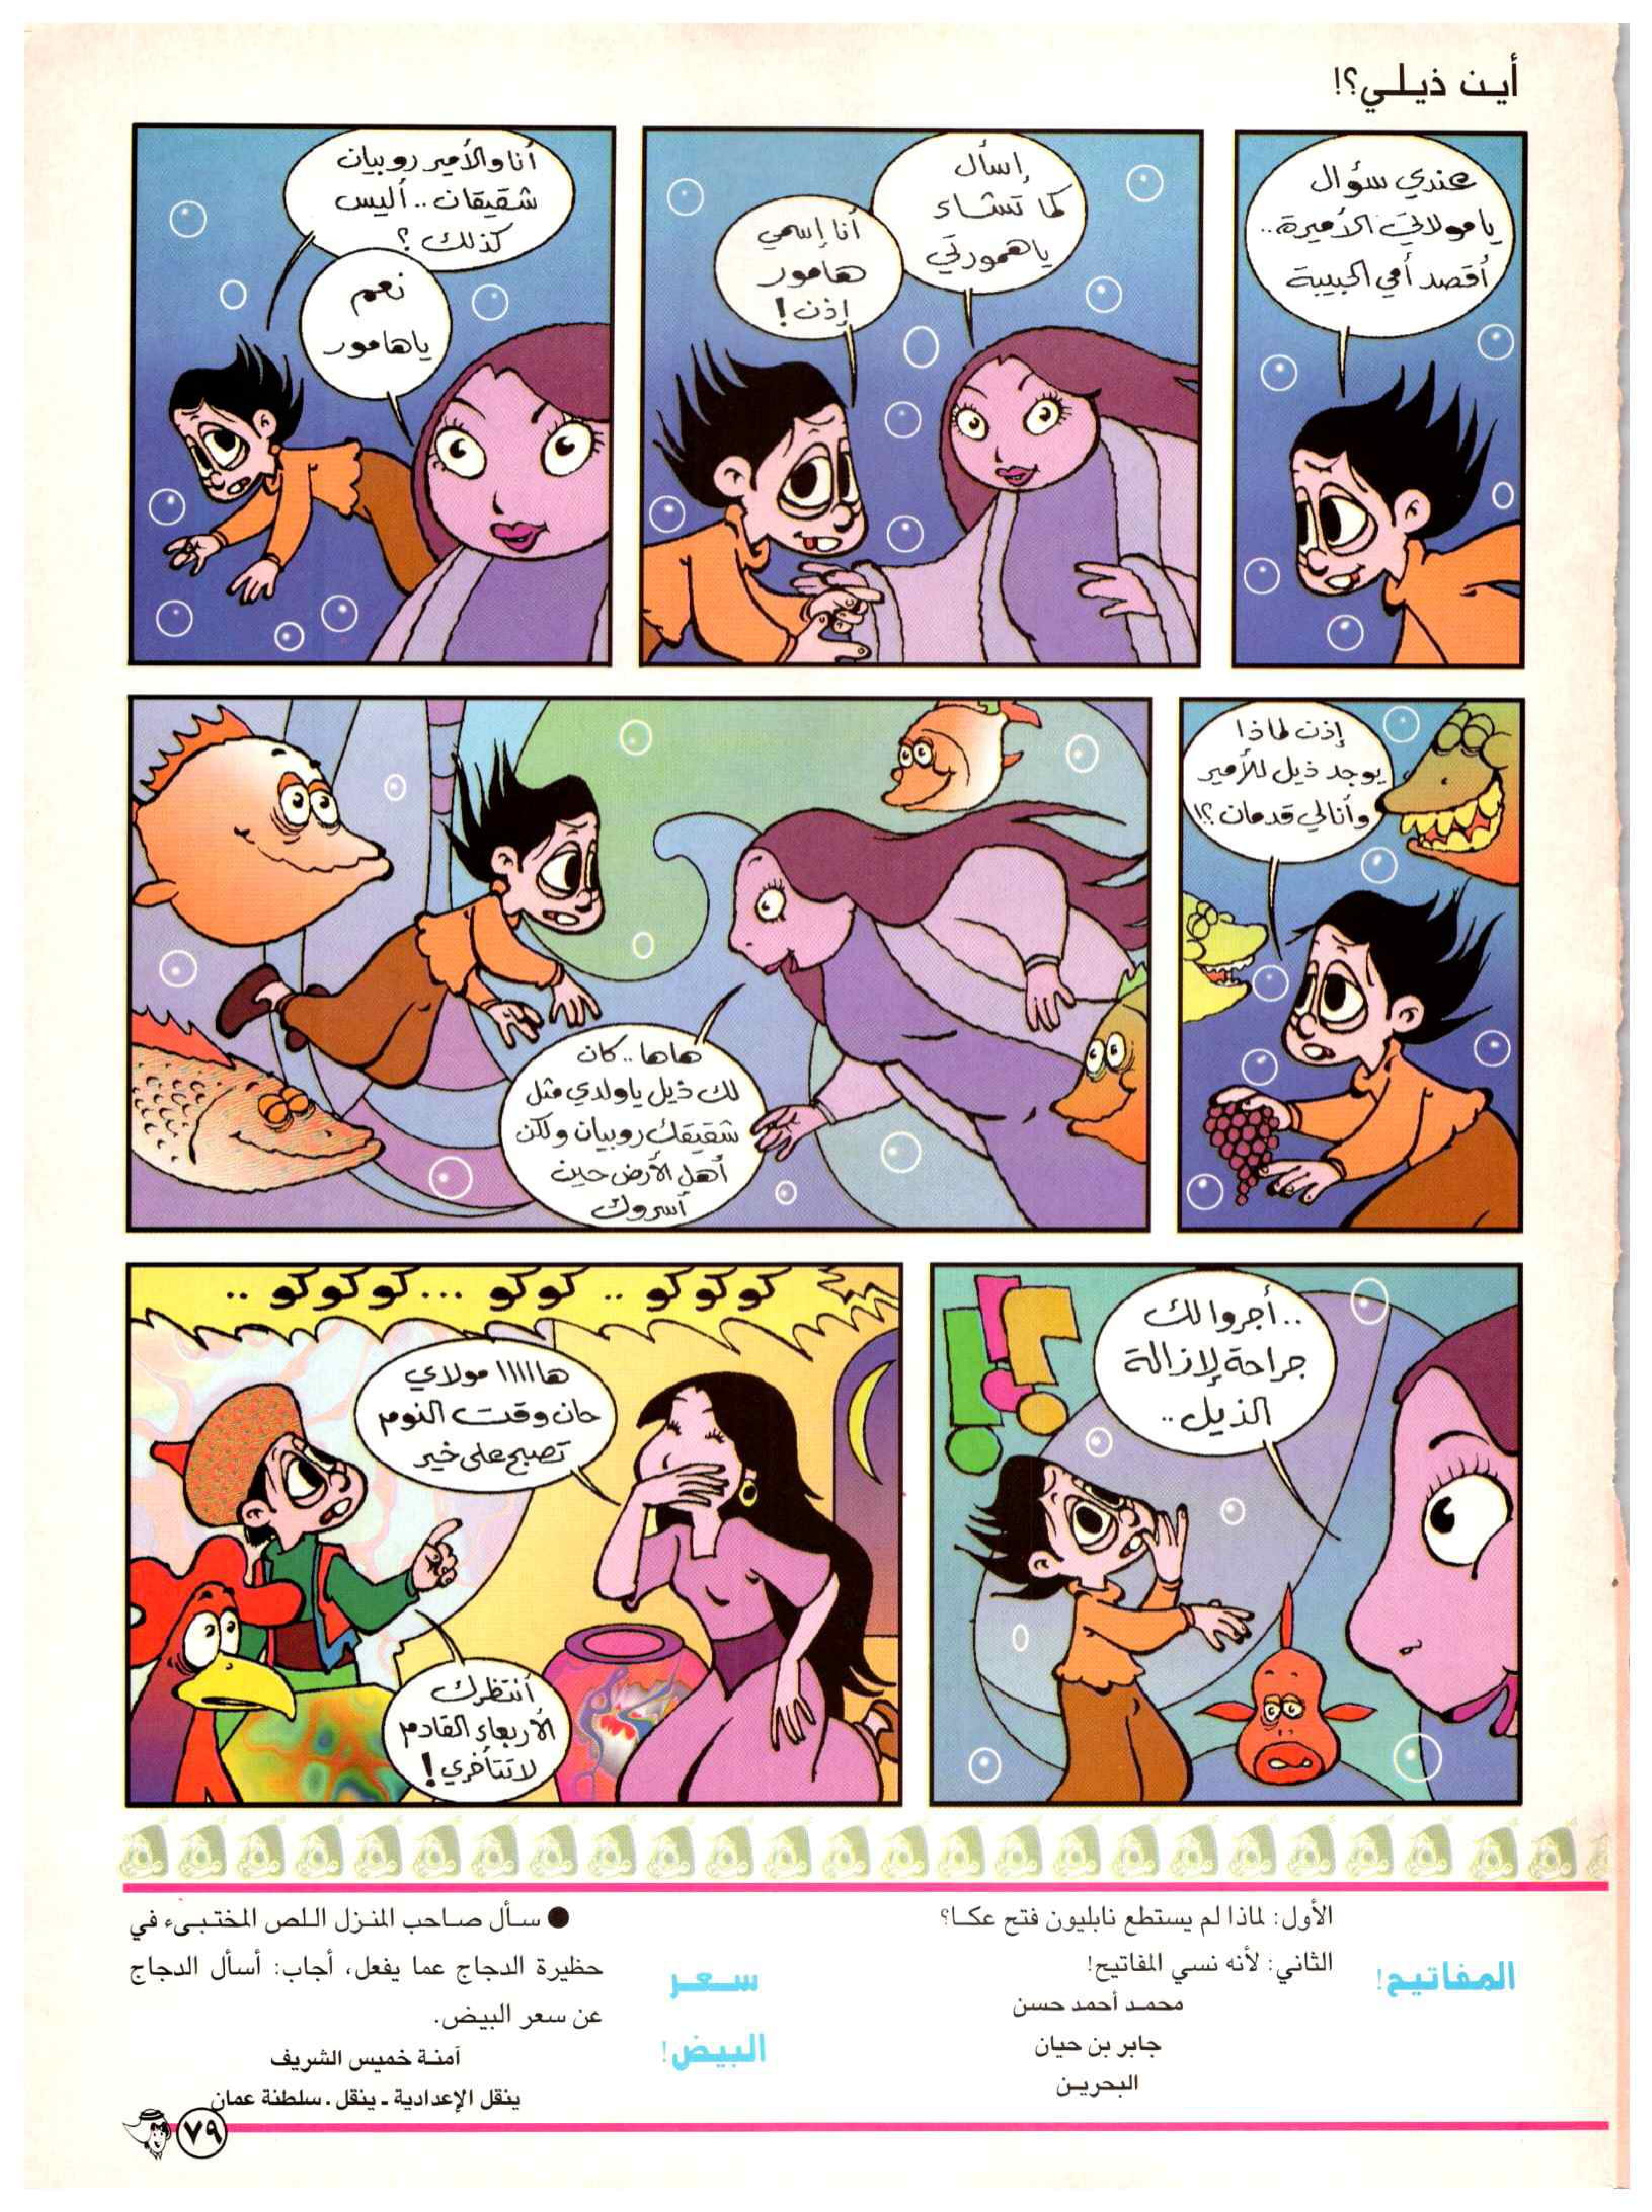 أين ذيلي؟!
عندي سؤال
يا مولاتي الأميرة..
أقصد أمي الحبيبة
إسأل
كما تشاء
ياهمورتي
أنا إسمي
هامور
إذن!
أنا والأمير روبيان
شقيقان.. أليس
كذلك؟
نعم
ياهامور
إذن لماذا
يوجد ذيل للأمير
وأنا لي قدمان؟!
هاها.. كان
لك ذيل ياولدي مثل
شقيقك روبيان ولكن
أهل الأرض حين
أسروك
..أجروا لك
جراحة لإزالة
الذيل..
كوكوكو .. كوكو ... كوكوكو ..
هااااا مولاي
حان وقت النوم
تصبح على خير
أنتظرك
الأربعاء القادم
لا تتأخري!
المفاتيح!
الأول: لماذا لم يستطع نابليون فتح عكـا؟
الثاني: لأنه نسي المفاتيح!
محمـد أحمد حسن
جابر بن حيان
البحريـن
سـعـر
البيض!
● سـأل صـاحب المنـزل الـلص المختـبىء في
حظيرة الدجاج عما يفعل، أجاب: أسأل الدجاج
عن سعر البيض.
آمنـة خميس الشريف
ينقل الإعدادية ـ ينقل . سلطنة عمان
٧٩